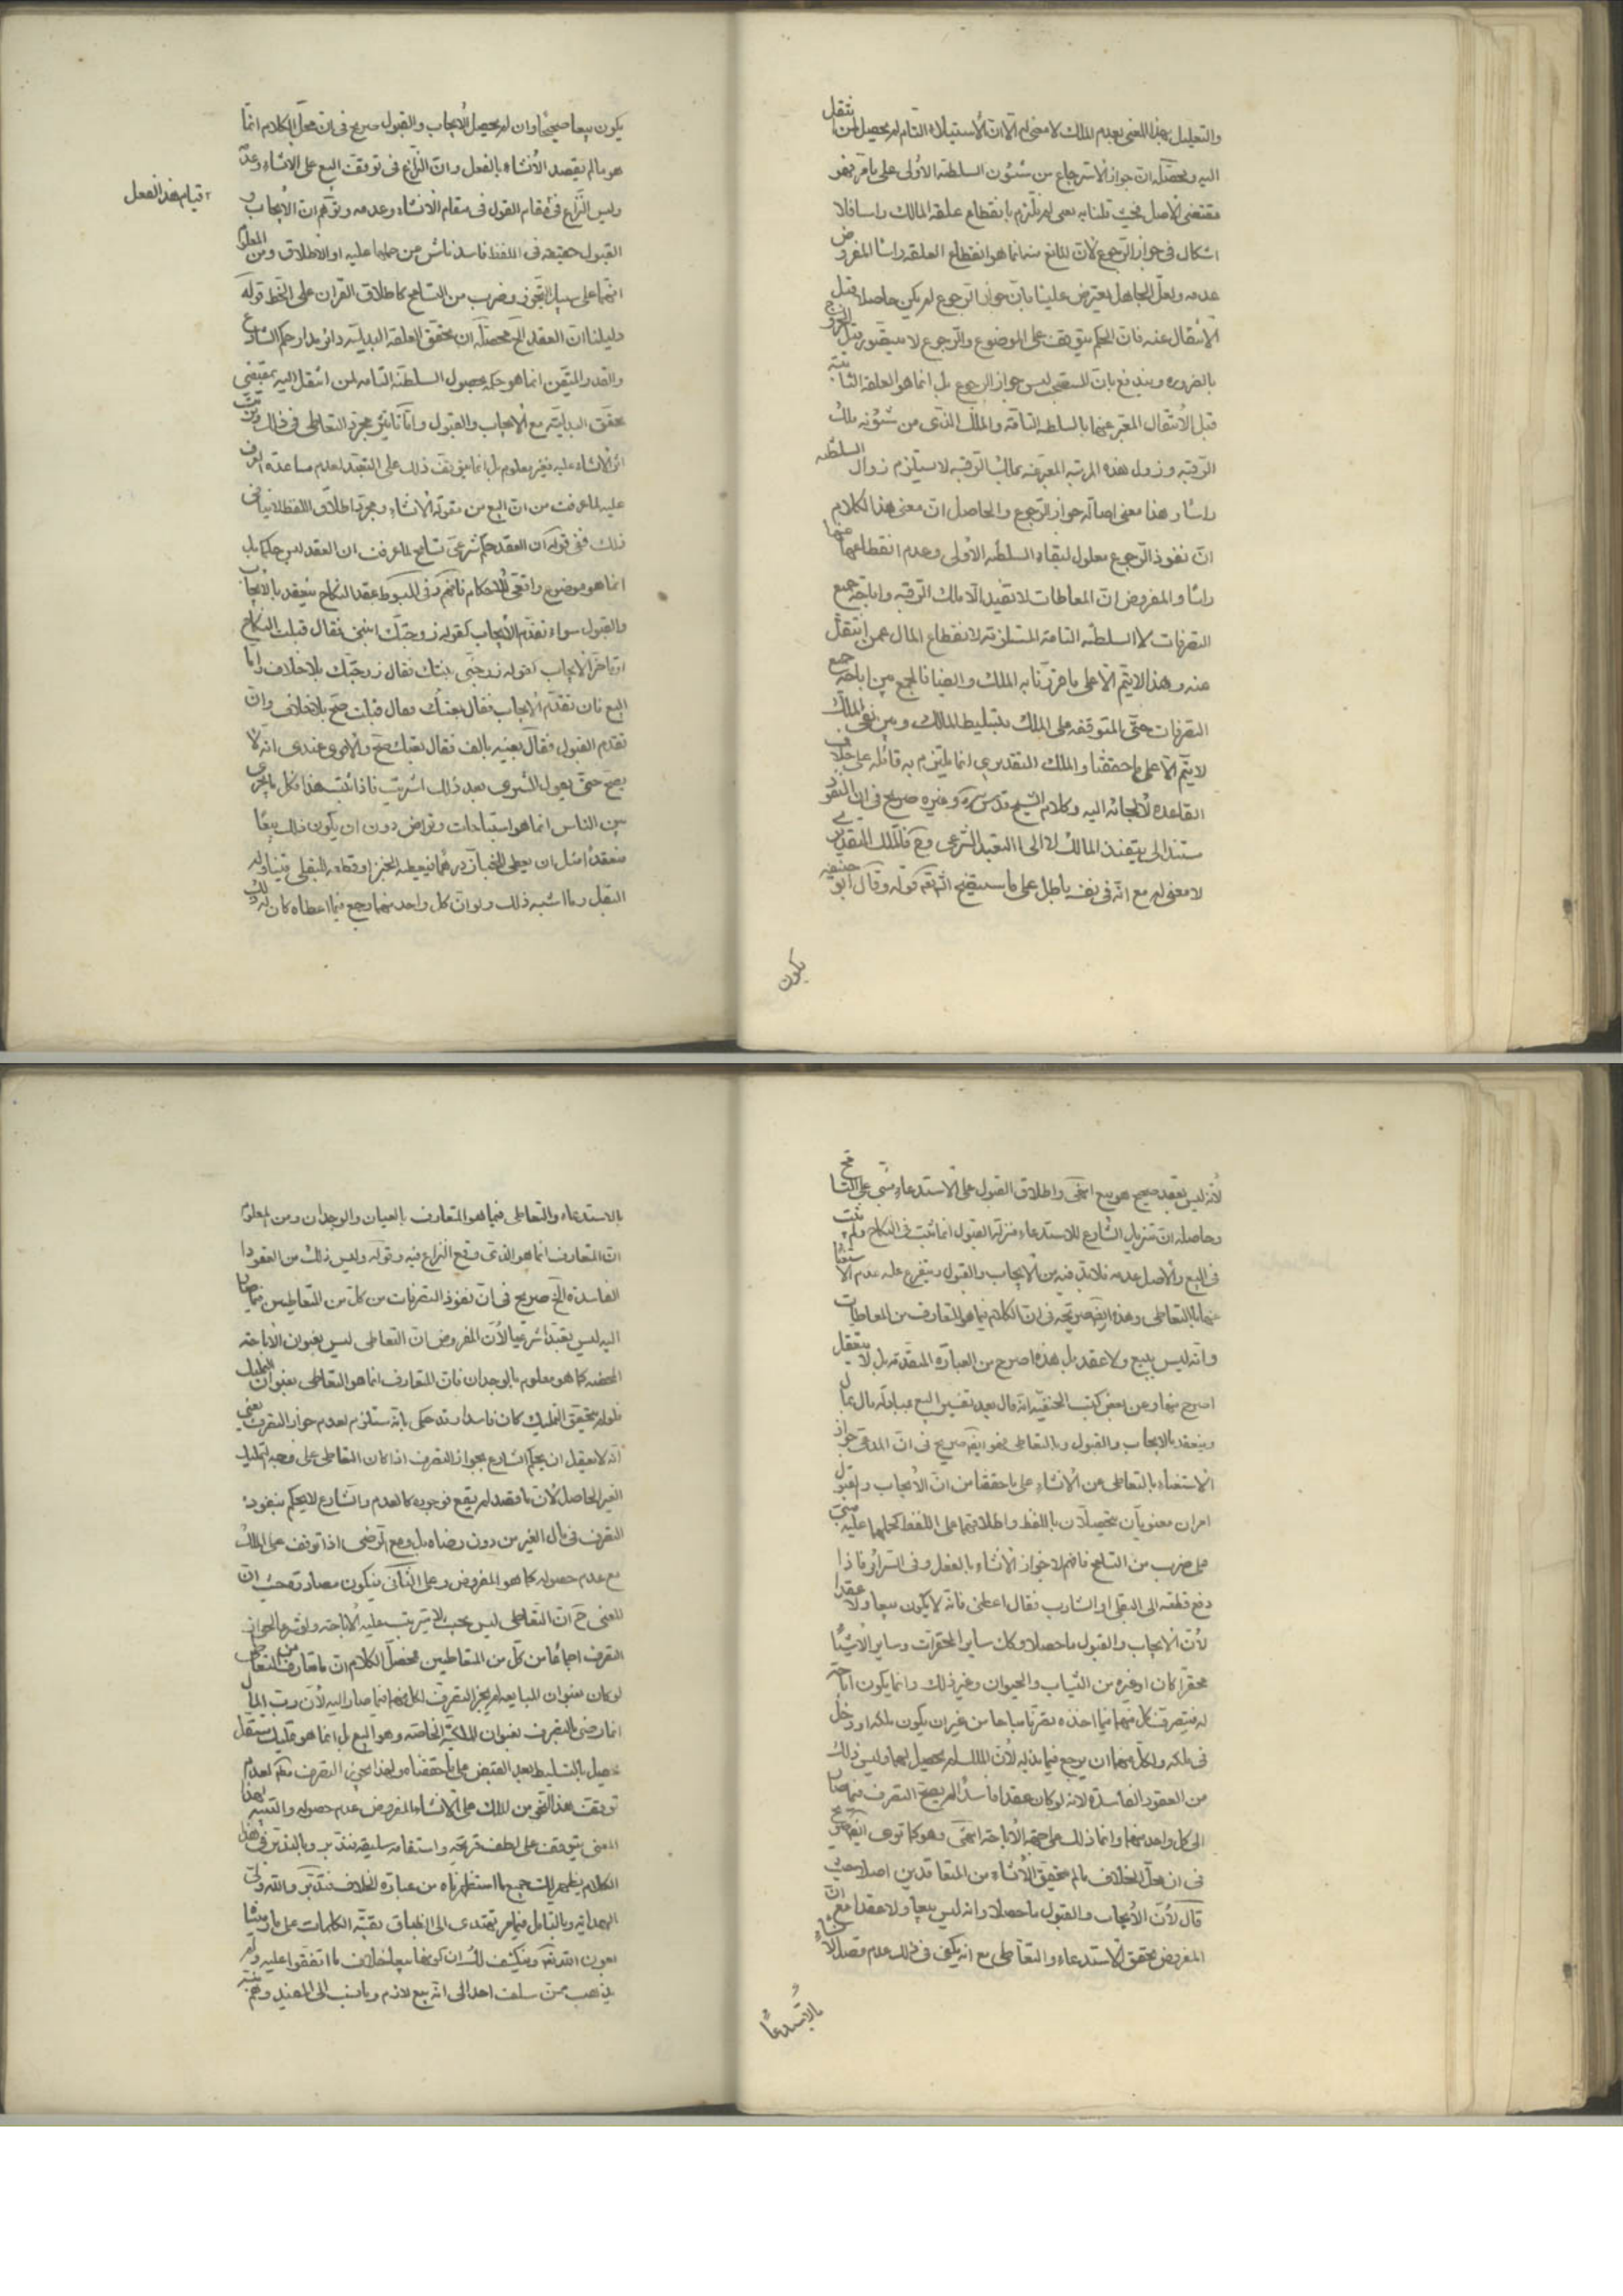 والتعليل بهذا المعنى بعدم الملك لا معنى له الا ان الاستيلاء التام لم يحصل لمن انتقل
اليه ومحصّله ان جواز الاسترجاع من شئون السلطنة الاولى على ما مرّ فهو
مقتضى الاصل فحيث قلنا به بمعنى لم نلتزم بانقطاع علقة المالك راسا فلا
اشكال فى جواز الرجوع لان المانع منه انما هو انقطاع العلقة راسا المفروض
عدمه ولعلّ الجاهل يعترض علينا بان جواز الرجوع لم يكن حاصلا قبل
الانتقال عنه فان الحكم يتوقف على الموضوع والرجوع لا يتصور قبل الخروج
بالضرورة ويندفع بان المستصحب ليس جواز الرجوع بل انما هو العلقة الثابتة
قبل الانتقال المعبّر عنها بالسلطنة التامّة والملك الذى من شئونه ملك
الرقبة وزوال هذه المرتبة المعبّر عنه بملك الرقبة لا يستلزم زوال السلطنة
راسًا وهذا معنى اصالة جواز الرجوع والحاصل ان معنى هذا الكلام
انّ نفوذ الرجوع معلول لبقاء السلطنة الاولى وعدم انقطاعها عنها
راسًا والمفروض انّ المعاطات لا تفيد الا ملك الرقبة واباحة جميع
التصرفات لا السلطنة التامة المستلزمة لانقطاع المال عمن انتقل
عنه وهذا لا يتم الا على ما قرّرنا به الملك وايضا فالجمع بين اباحة جميع
التصرفات حتى المتوقفة على الملك بتسليط المالك وبين نفى الملك
لا يتم الا على ما حققنا والملك التقديرى انما يلتزم به قائله على خلاف
القاعدة لالجائه اليه وكلام الشيخ قدس سره وغيره صريح فى ان النفوذ
مستند الى تنفيذ المالك لا الى التعبد الشرعى ومع ذلك فالملك التقديرى
لا معنى له مع انّه فى نفسه باطل على ما سيتضح انشاء الله تعالى قوله وقال ابو حنيفه
يكون
يكون بيعا صحيحًا وان لم يحصل الايجاب والقبول صريح فى ان محلّ الكلام انما
هو ما لم يقصد الانشاء بالفعل وانّ النزاع فى توقف البيع على الانشاء وعدمه
وليس النّزاع فى مقام القول فى مقام الانشاء وعدمه وتوهّم ان الايجاب و
قيام هذا الفعل
القبول حقيقة فى اللفظ فاسد ناش من حملهما عليه او الاطلاق ومن المعلوم
انهما على سبيل التجوز وضرب من التسامح كاطلاق القران على الخط قوله
دليلنا ان العقد الخ محصّله ان تحقق العلقة البدلية دائر مدار حكم الشارع
والقدر المتيقن انما هو حكمه بحصول السلطنة التامة لمن انتقل اليه بمقتضى
تحقق البدلية مع الايجاب والقبول وامّا تاثير مجرد التعاطى فى ذلك وترتّب
اثر الانشاء عليه فغير معلوم بل انما يتوقف ذلك على التعبد لعدم مساعدة العرف
عليه لما عرفت من ان البيع من مقولة الانشاء ومجرد اطلاق اللفظ لا ينافى
ذلك ففى قوله ان العقد حكم شرعى تسامح لما عرفت ان العقد ليس حكما بل
انما هو موضوع واقعى للاحكام فافهم وفى المبسوط عقد النكاح ينعقد بالايجاب
والقبول سواء تقدم الايجاب كقوله زوجتك ابنتى فقال قبلت النكاح
او تاخّر الايجاب كقوله زوجنى بنتك فقال زوجتك بلا خلاف واما
البيع فان تقدّم الايجاب فقال بعتك فقال قبلت صح بلا خلاف وان
تقدم القبول فقال بعنيه بالف فقال بعتك صح والاقوى عندى انه لا
يصح حتى يقول المشترى بعد ذلك اشتريت فاذا ثبت هذا فكل ما يجرى
بين الناس انما هو استباحات وتراض دون ان يكون ذلك بيعًا
منعقدًا مثل ان يعطى الخباز درهما فيعطيه الخبز او قطعة للبقلى فيناوله
البقل وما اشبه ذلك ولو انّ كل واحد منهما رجع فيما اعطاه كان له ذلك
لانّه ليس بعقد صحيح هو بيع انتهى واطلاق القبول على الاستدعاء مبنى على التسامح
وحاصله ان تنزيل الشارع للاستدعاء منزلة القبول انما ثبت فى النكاح ولم يثبت
فى البيع والاصل عدمه فلا بد فيه من الايجاب والقبول ويتفرع عليه عدم الاستغناء
عنهما بالتعاطى وهذا ايضا صريحة فى ان الكلام فيما هو المتعارف من المعاطات
وانه ليس ببيع ولا عقد بل هذه اصرح من العبارة المتقدمة بل لا يتعقل
اصرح منها وعن بعض كتب الحنفية انه قال بعد تفسير البيع بمبادلة مال بمال
وينعقد بالايجاب والقبول وبالتعاطى فهو ايضا صريح فى ان المدعى جواز
الاستغناء بالتعاطى عن الانشاء على ما حققنا من انّ الايجاب والقبول
امران معنويان يتحصلان باللفظ واطلاقهما على اللفظ كحملهما عليه مبنى
على ضرب من التسامح فافهم لا جواز الانشاء بالفعل وفى السرائر فاذا
دفع قطعة الى البقلى او الشارب فقال اعطنى فانه لا يكون بيعا ولا عقدا
لانّ الايجاب والقبول ما حصلا وكان ساير المحقرات وساير الاشياء
محقرا كان او غيره من الثياب والحيوان وغير ذلك وانما يكون اباحة
له فيتصرف كل منهما فيما اخذه تصرفا مباحا من غير ان يكون ملكه او دخل
فى ملكه ولكل منهما ان يرجع فيما بذله لان الملك لم يحصل لهما وليس ذلك
من العقود الفاسدة لانه لو كان عقدا فاسدًا لم يصح التصرف فيما صار
الى كل واحد منهما وانما ذلك على جهة الاباحة انتهى وهو كما ترى ايضا صريح
فى ان محلّ الخلاف ما لم يتحقق الانشاء من المتعاقدين اصلا حيث
قال لانّ الايجاب والقبول ما حصلا وانه ليس بيعا ولا عقدا مع ان
المفروض تحقق الاستدعاء والتعاطى مع انه يكفى فى ذلك عدم قصد الانشاء
بالاستدعاء
بالاستدعاء والتعاطى فيما هو المتعارف بالعيان والوجدان ومن المعلوم
ان المتعارف انما هو الذى وقع النزاع فيه وقوله وليس ذلك من العقود
الفاسدة الخ صريح فى ان نفوذ التصرفات من كل من المتعاطيين فيما صار
اليه ليس تعبدا شرعيا لانّ المفروض ان التعاطى ليس بعنوان الاباحة
المحضة كما هو معلوم بالوجدان فان المتعارف انما هو التعاطى بعنوان التمليك
فلو لم يتحقق التمليك كان فاسدا وقد حكى بانه مستلزم لعدم جواز التصرف يعنى
انه لا يعقل ان يحكم الشارع بجواز التصرف اذا كان التعاطى على وجه التمليك
الغير الحاصل لان ما قصد لم يقع فوجوده كالعدم والشارع لا يحكم بنفوذ
التصرف فى مال الغير من دون رضاه بل ومع الرضى اذا توقف على الملك
مع عدم حصوله كما هو المفروض وعلى الثانى فيكون مصادرة حيث ان
المعنى ح ان التعاطى ليس بحيث لا يترتب عليه الاباحة ولو شرعا لجواز
التصرف اجماعًا من كلّ من المتعاطيين فمحصّل الكلام ان ما تعارف من التعاطى
لو كان بعنوان المبايعة لم يجز التصرف لكل منهما فيما صار اليه لان رب المال
انما رضى بالتصرف بعنوان الملكية الخاصة وهو البيع بل انما هو تمليك مستقل
حصل بالتسليط بعد القبض على ما حققناه ولهذا يجوز التصرف معه لعدم
توقف هذا النحو من الملك على الانشاء المفروض عدم حصوله والتنبه لهذا
المعنى يتوقف على لطف قريحة واستقامة سليقة فتدبر وبالتدبر فى هذا
الكلام يظهر لك جميع ما استظهرناه من عبارة الخلاف فتدبّر والله ولى
الهداية وبالتامل فيما مر تهتدى الى انطباق بقيّة الكلمات على ما ربّينا
بعون الله تعالى وينكشف لك ان كونها بيعا خلاف ما اتفقوا عليه ولم
يذهب ممن سلف احد الى انه بيع لازم وما نسب الى المفيد وهم